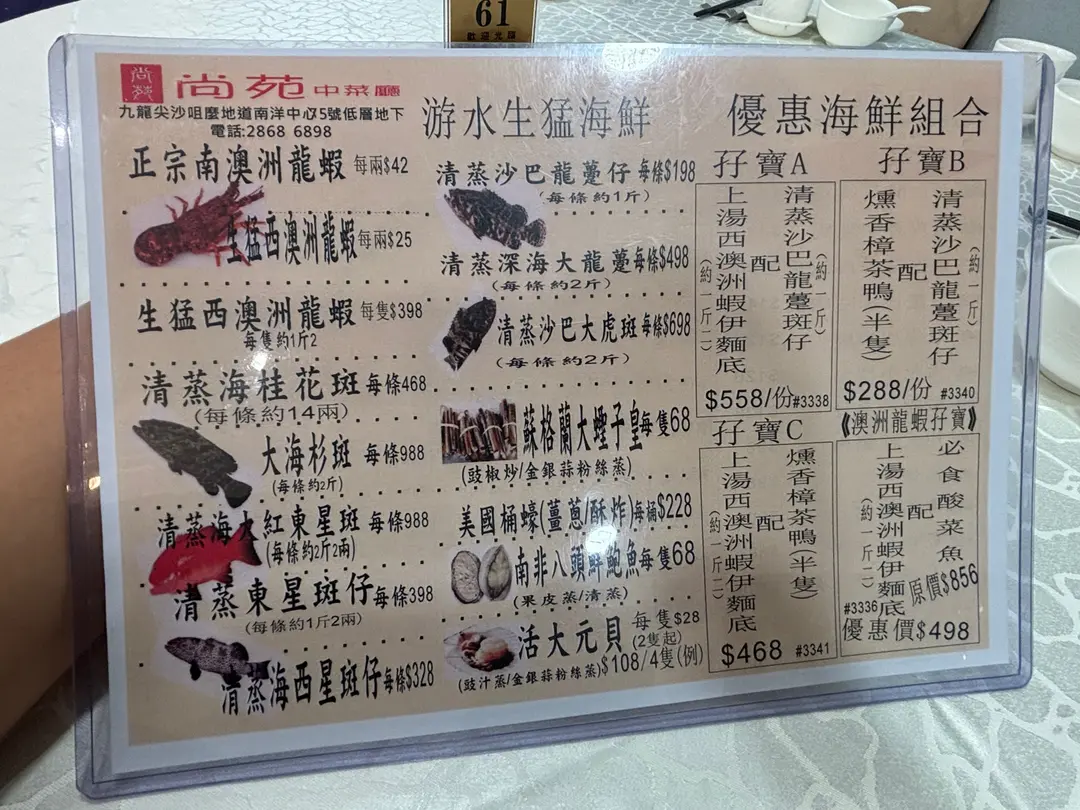 61
歡迎光臨
尚苑
尚苑 中菜廳
九龍尖沙咀麼地道南洋中心5號低層地下
電話:2868 6898
游水生猛海鮮
優惠海鮮組合
正宗南澳洲龍蝦 每兩$42
生猛西澳洲龍蝦 每兩$25
生猛西澳洲龍蝦 每隻$398
每隻約1斤2
清蒸海桂花斑 每條468
(每條約14兩)
大海杉斑 每條988
(每條約2斤)
清蒸海大紅東星斑 每條988
(每條約2斤2兩)
清蒸東星斑仔 每條398
(每條約1斤2兩)
清蒸海西星斑仔 每條$328
清蒸沙巴龍躉仔 每條$198
(每條約1斤)
清蒸深海大龍躉 每條$498
(每條約2斤)
清蒸沙巴大虎斑 每條$698
(每條約2斤)
蘇格蘭大蟶子皇 每隻68
(豉椒炒/金銀蒜粉絲蒸)
美國桶蠔(薑蔥/酥炸) 每桶$228
南非八頭鮮鮑魚 每隻68
(果皮蒸/清蒸)
活大元貝 每隻$28
(2隻起)
$108/4隻(例)
(豉汁蒸/金銀蒜粉絲蒸)
孖寶A
清蒸沙巴龍躉斑仔(約一斤)
配
上湯西澳洲蝦伊麵底(約一斤二)
$558/份 #3338
孖寶B
清蒸沙巴龍躉斑仔(約一斤)
配
燻香樟茶鴨(半隻)
$288/份 #3340
孖寶C
燻香樟茶鴨(半隻)
配
上湯西澳洲蝦伊麵底(約一斤二)
$468 #3341
《澳洲龍蝦孖寶》
必食酸菜魚
配
上湯西澳洲蝦伊麵底(約一斤二)
原價$856
#3336
優惠價$498